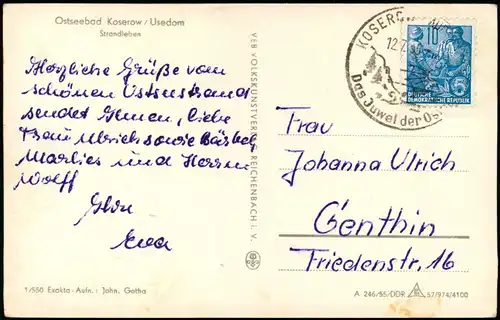 Ostseebad Koserow/Usedom
Strandleben
Herzliche Grüße vom
schönen Ostseestrand
sendet Ihnen, liebe
Frau Ulrich sowie Bärbel,
Marlies und Herrn
Wolff
Ihre
Eva
1/550 Exakta-Aufn.: John, Gotha
VEB VOLKSKUNSTVERLAG REICHENBACH i. V.
KOSEROW
12.7.
Das Juwel der Ostsee
10
DEUTSCHE
DEMOKRATISCHE REPUBLIK
Frau
Johanna Ulrich
Genthin
Friedenstr. 16
A 246/55/DDR 57/974/4100